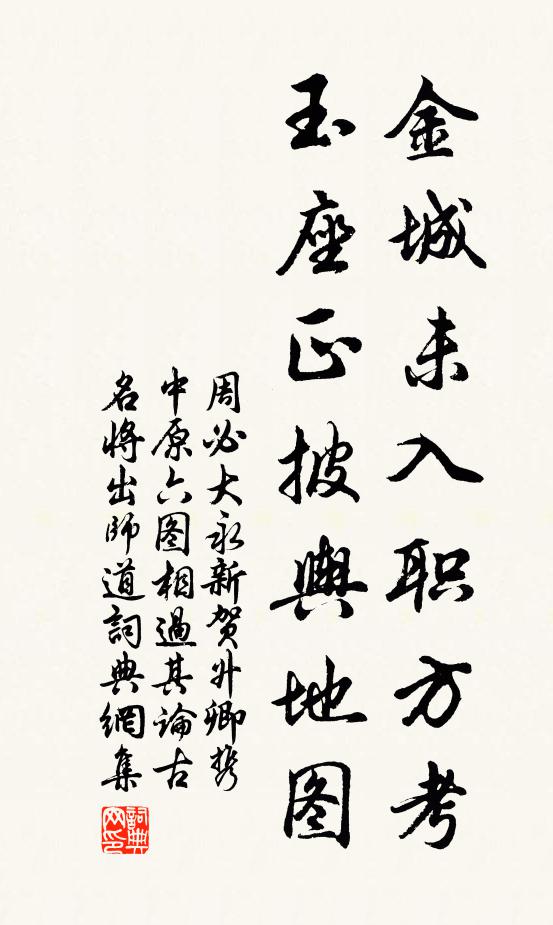 金城未入职方考
玉座正披舆地图
周必大永新贺升卿携
中原六图相过其論古
名将出师道詞典網集
詞典
网印